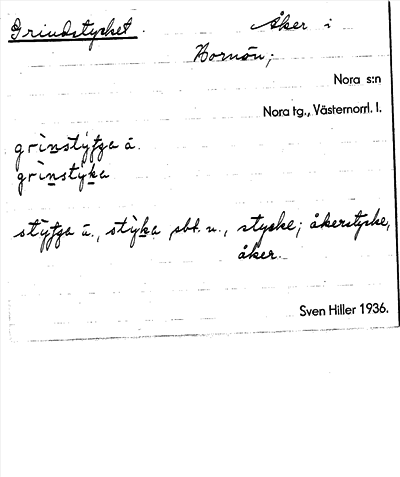 Grindstycket. Åker i
Hornön;
Nora s:n
Nora tg., Västernorrl. l.
grìnstýţţa ā.
grìnstýka
stýţţa ā., stýka sbt. n., stycke; åkerstycke,
åker.
Sven Hiller 1936.